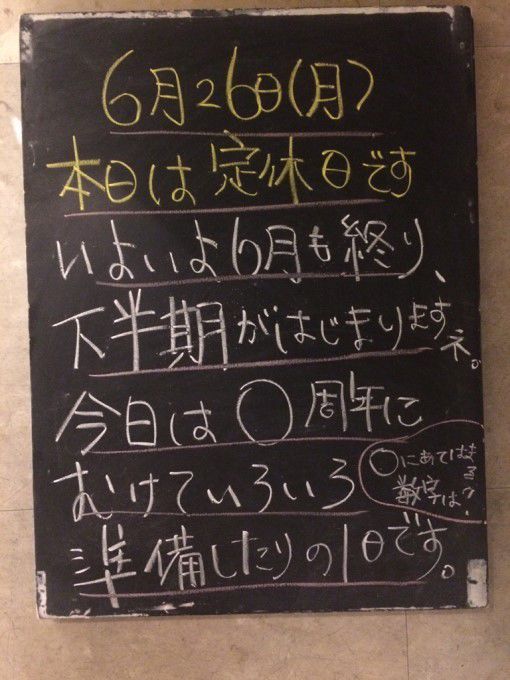 6月26日(月)
本日は定休日です
いよいよ6月も終り、
下半期がはじまりますネ。
今日は〇周年に
むけていろいろ
〇にあてはまる
数字は?
準備したりの1日です。